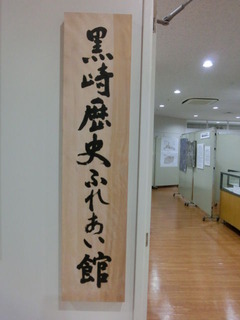 黒崎歴史ふれあい館